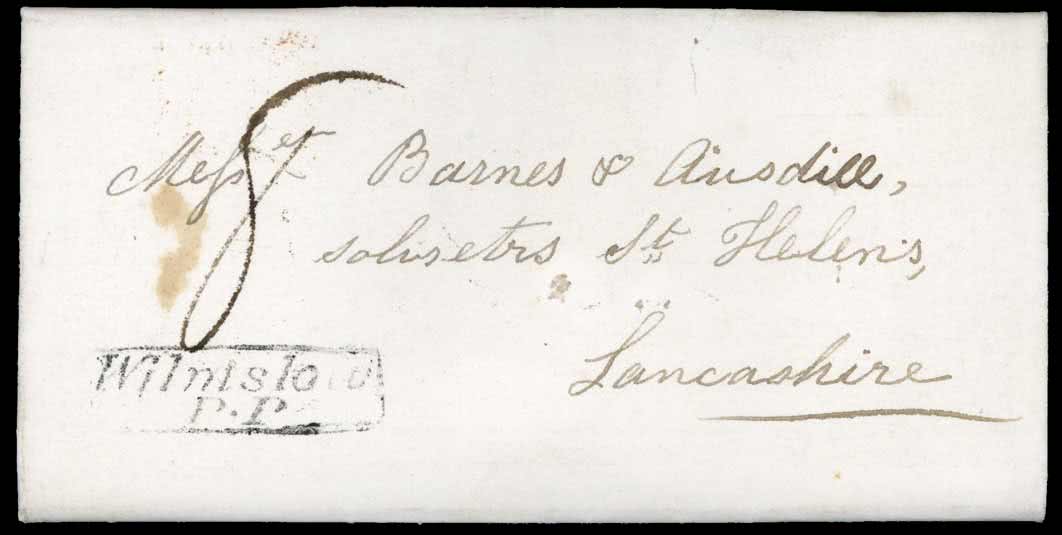 Messrs Barnes & Ansdill,
solisetrs St. Helens,
Lancashire
8
Wilmslow
P.P